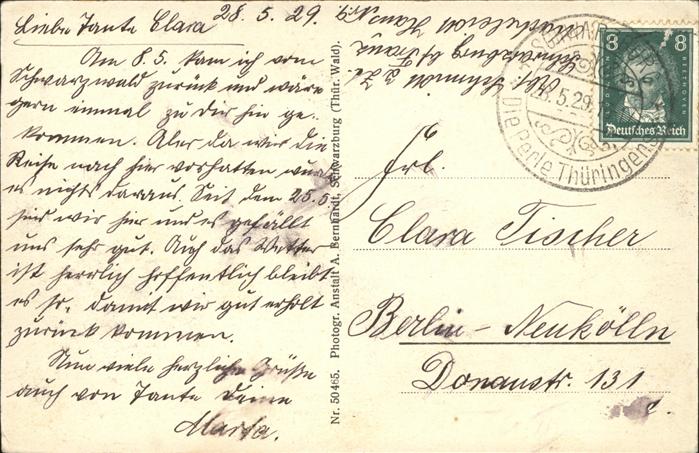 28. 5. 29.
Liebe Tante Clara
Am 8.5. kam ich vom
Schwarzwald zurück und wäre
gern einmal zu Dir hin ge-
kommen. Aber da wir die
Reise nach hier vorhatten wurde
es nichts daraus. Seit dem 25.5
sind wir hier und es gefällt
uns sehr gut. Auch das Wetter
ist herrlich hoffentlich bleibt
es so, damit wir gut erholt
zurück kommen.
Nun viele herzliche Grüße
auch von Tante Deine
Marta.
Nr. 50465. Photogr. Anstalt A. Bernhardt, Schwarzburg (Thür. Wald).
Abs. Schmidt z. Zt.
Schwarzburg bei Frau
Haus No 9.
8 8
Beethoven
Deutsches Reich
28.5.29
Die Perle Thüringens
Frl.
Clara Tischer
Berlin-Neukölln
Donaustr. 131